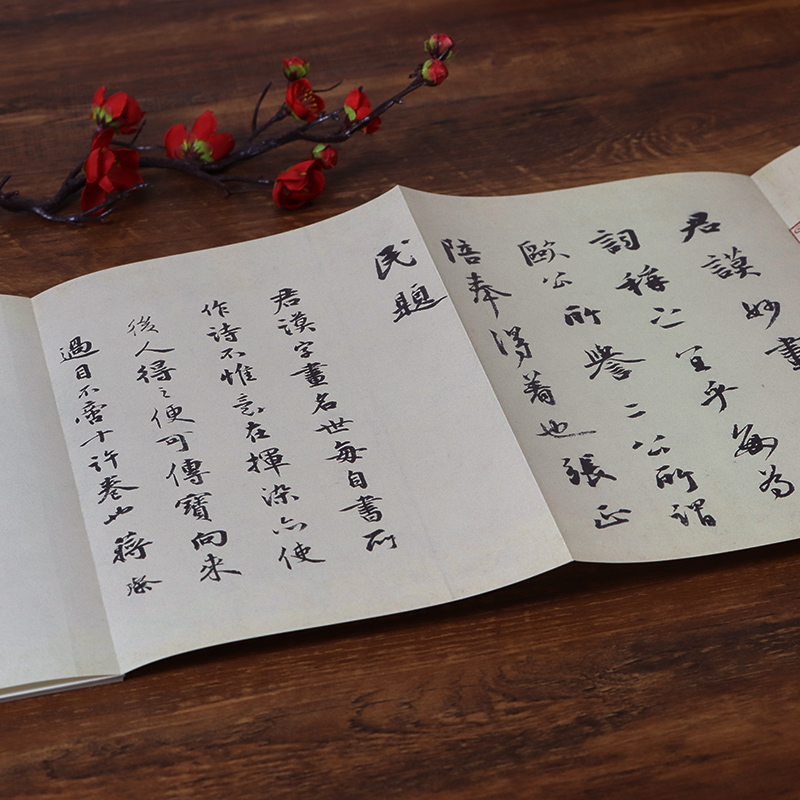 君謨妙畫每為
詞稱之宜乎
歐公所譽二公所謂
陪奉得著也張正
民題
君謨字畫名世每自書所
作詩不惟意在揮染亦使
後人得之便可傳寶向來
過目不啻十許卷也蔣璨